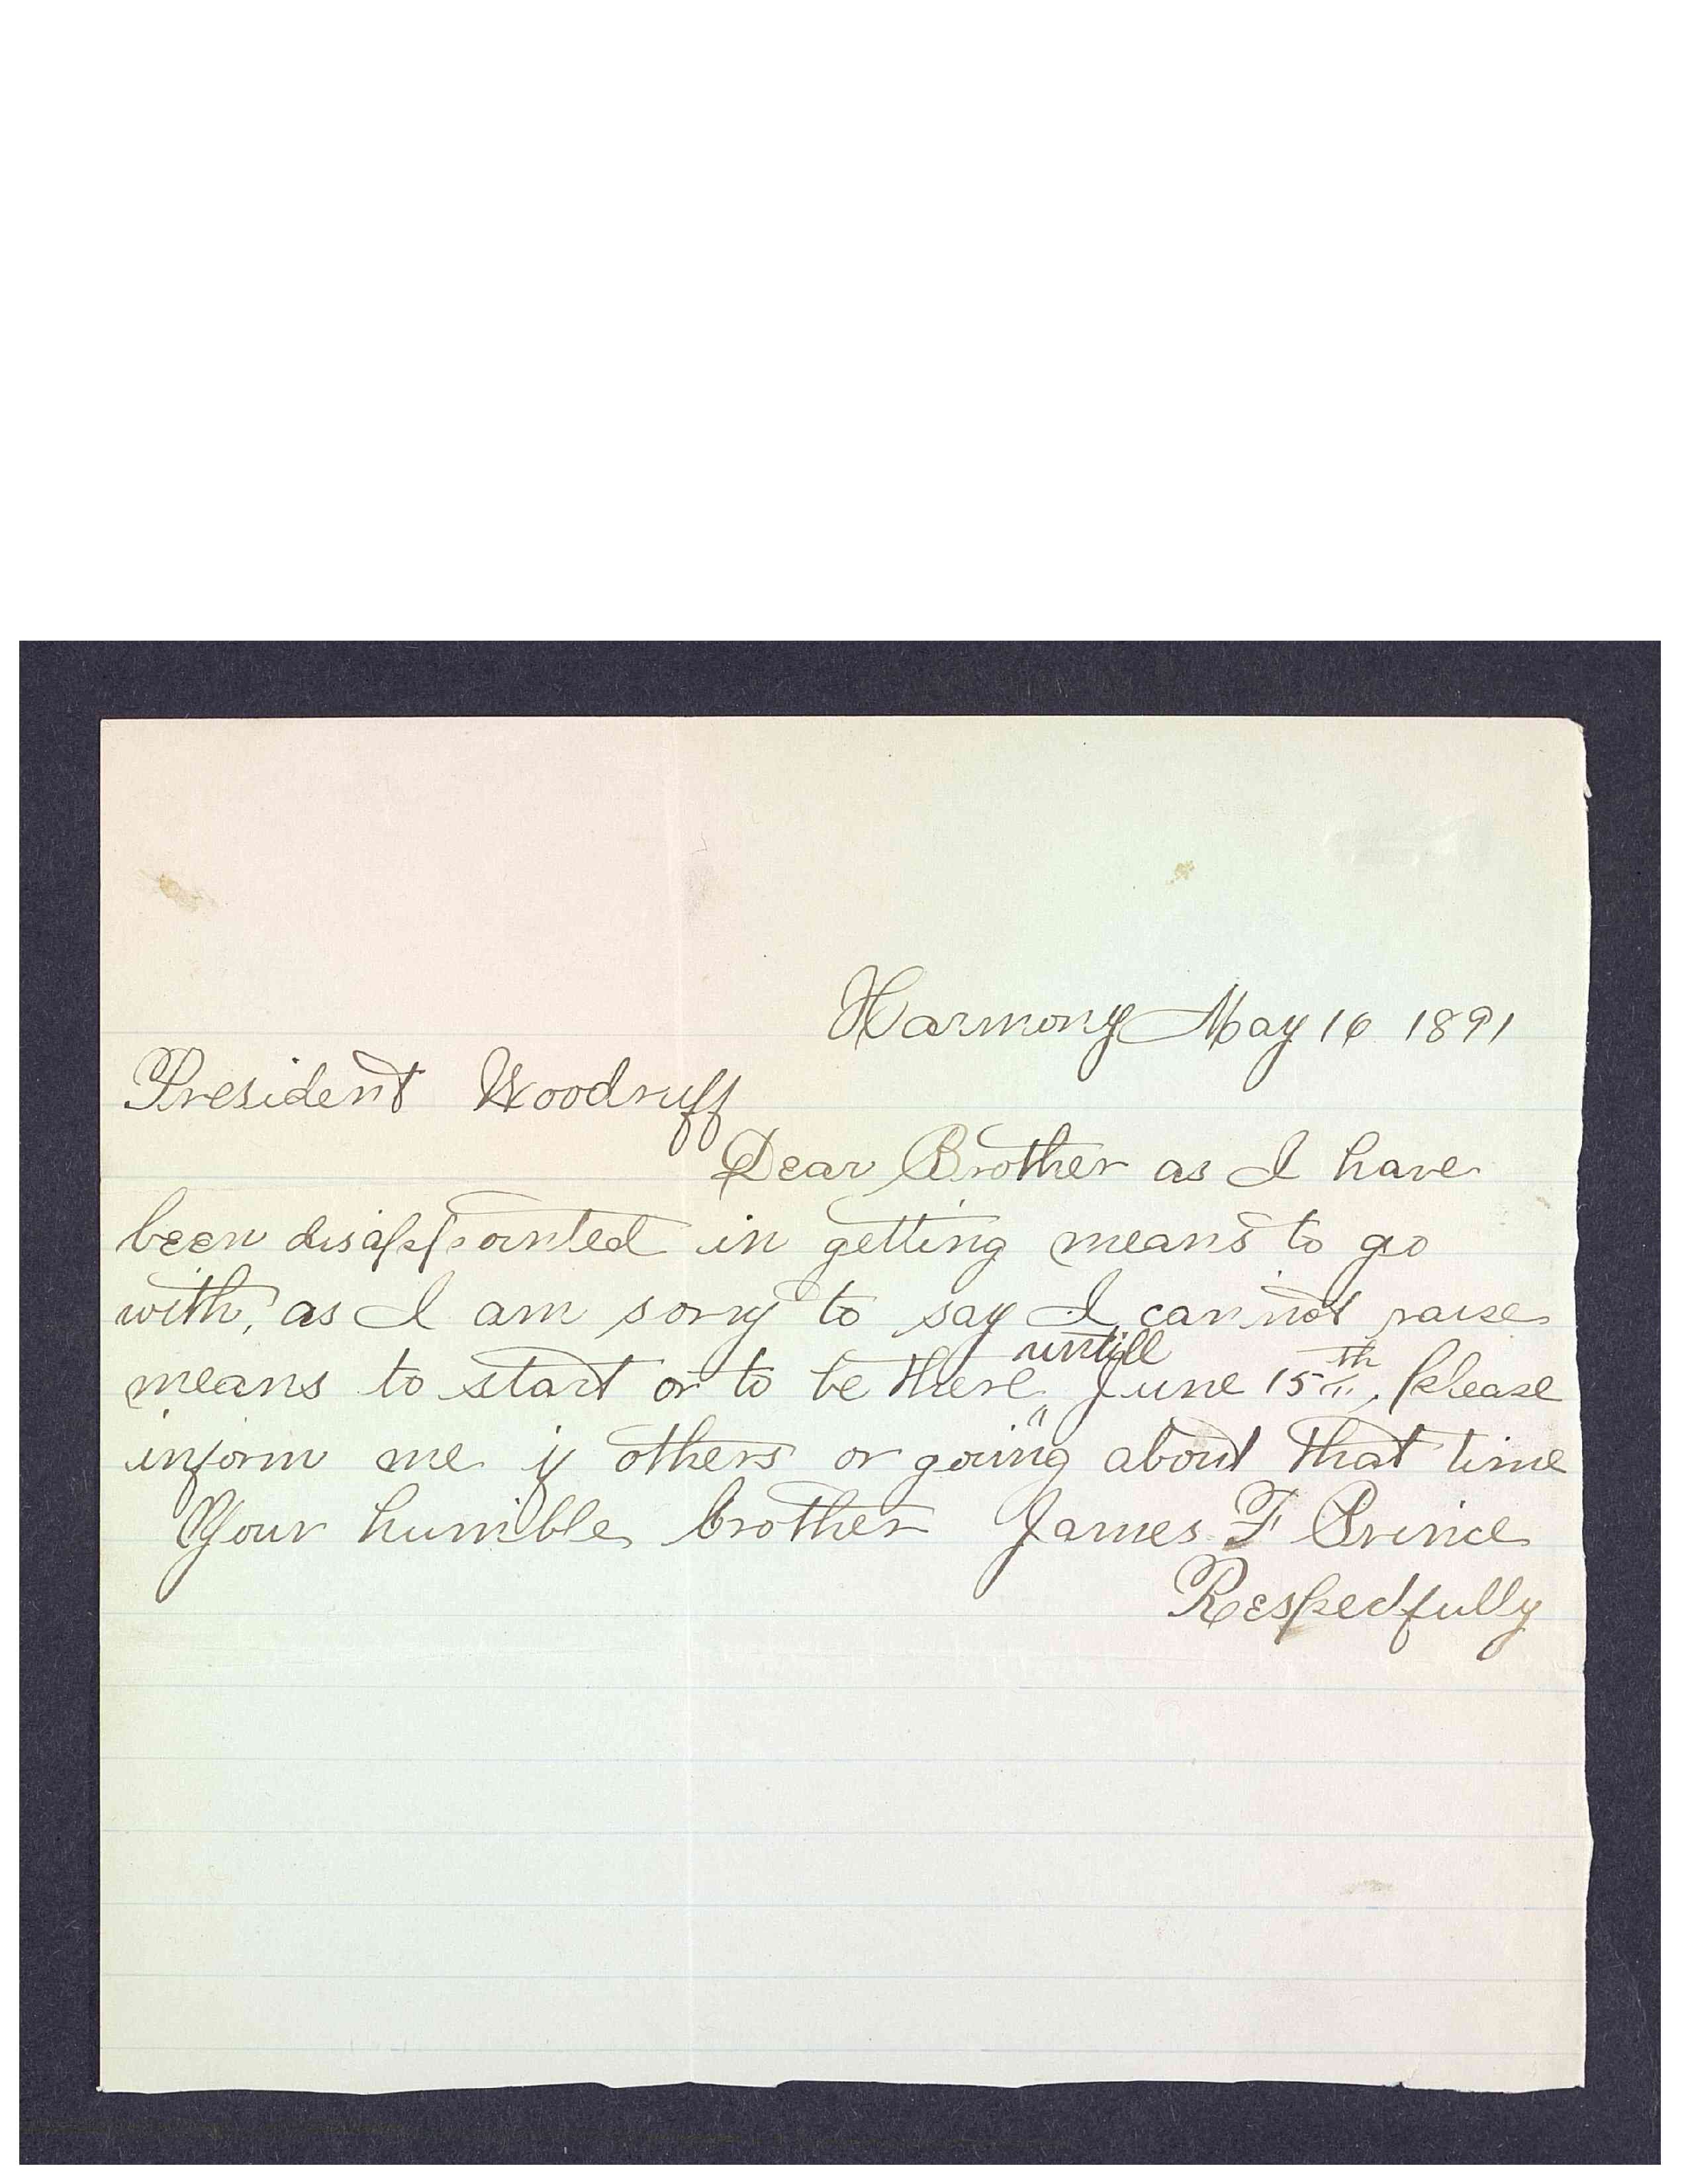 Harmony May 16 1891
President Woodruff
Dear Brother as I have
been disappointed in getting means to go
with, as I am sorry to say I cannot raise
untill
means to start or to be there June 15th, please
inform me if others or going about that time
Your humble brother James F Prince
Respectfully